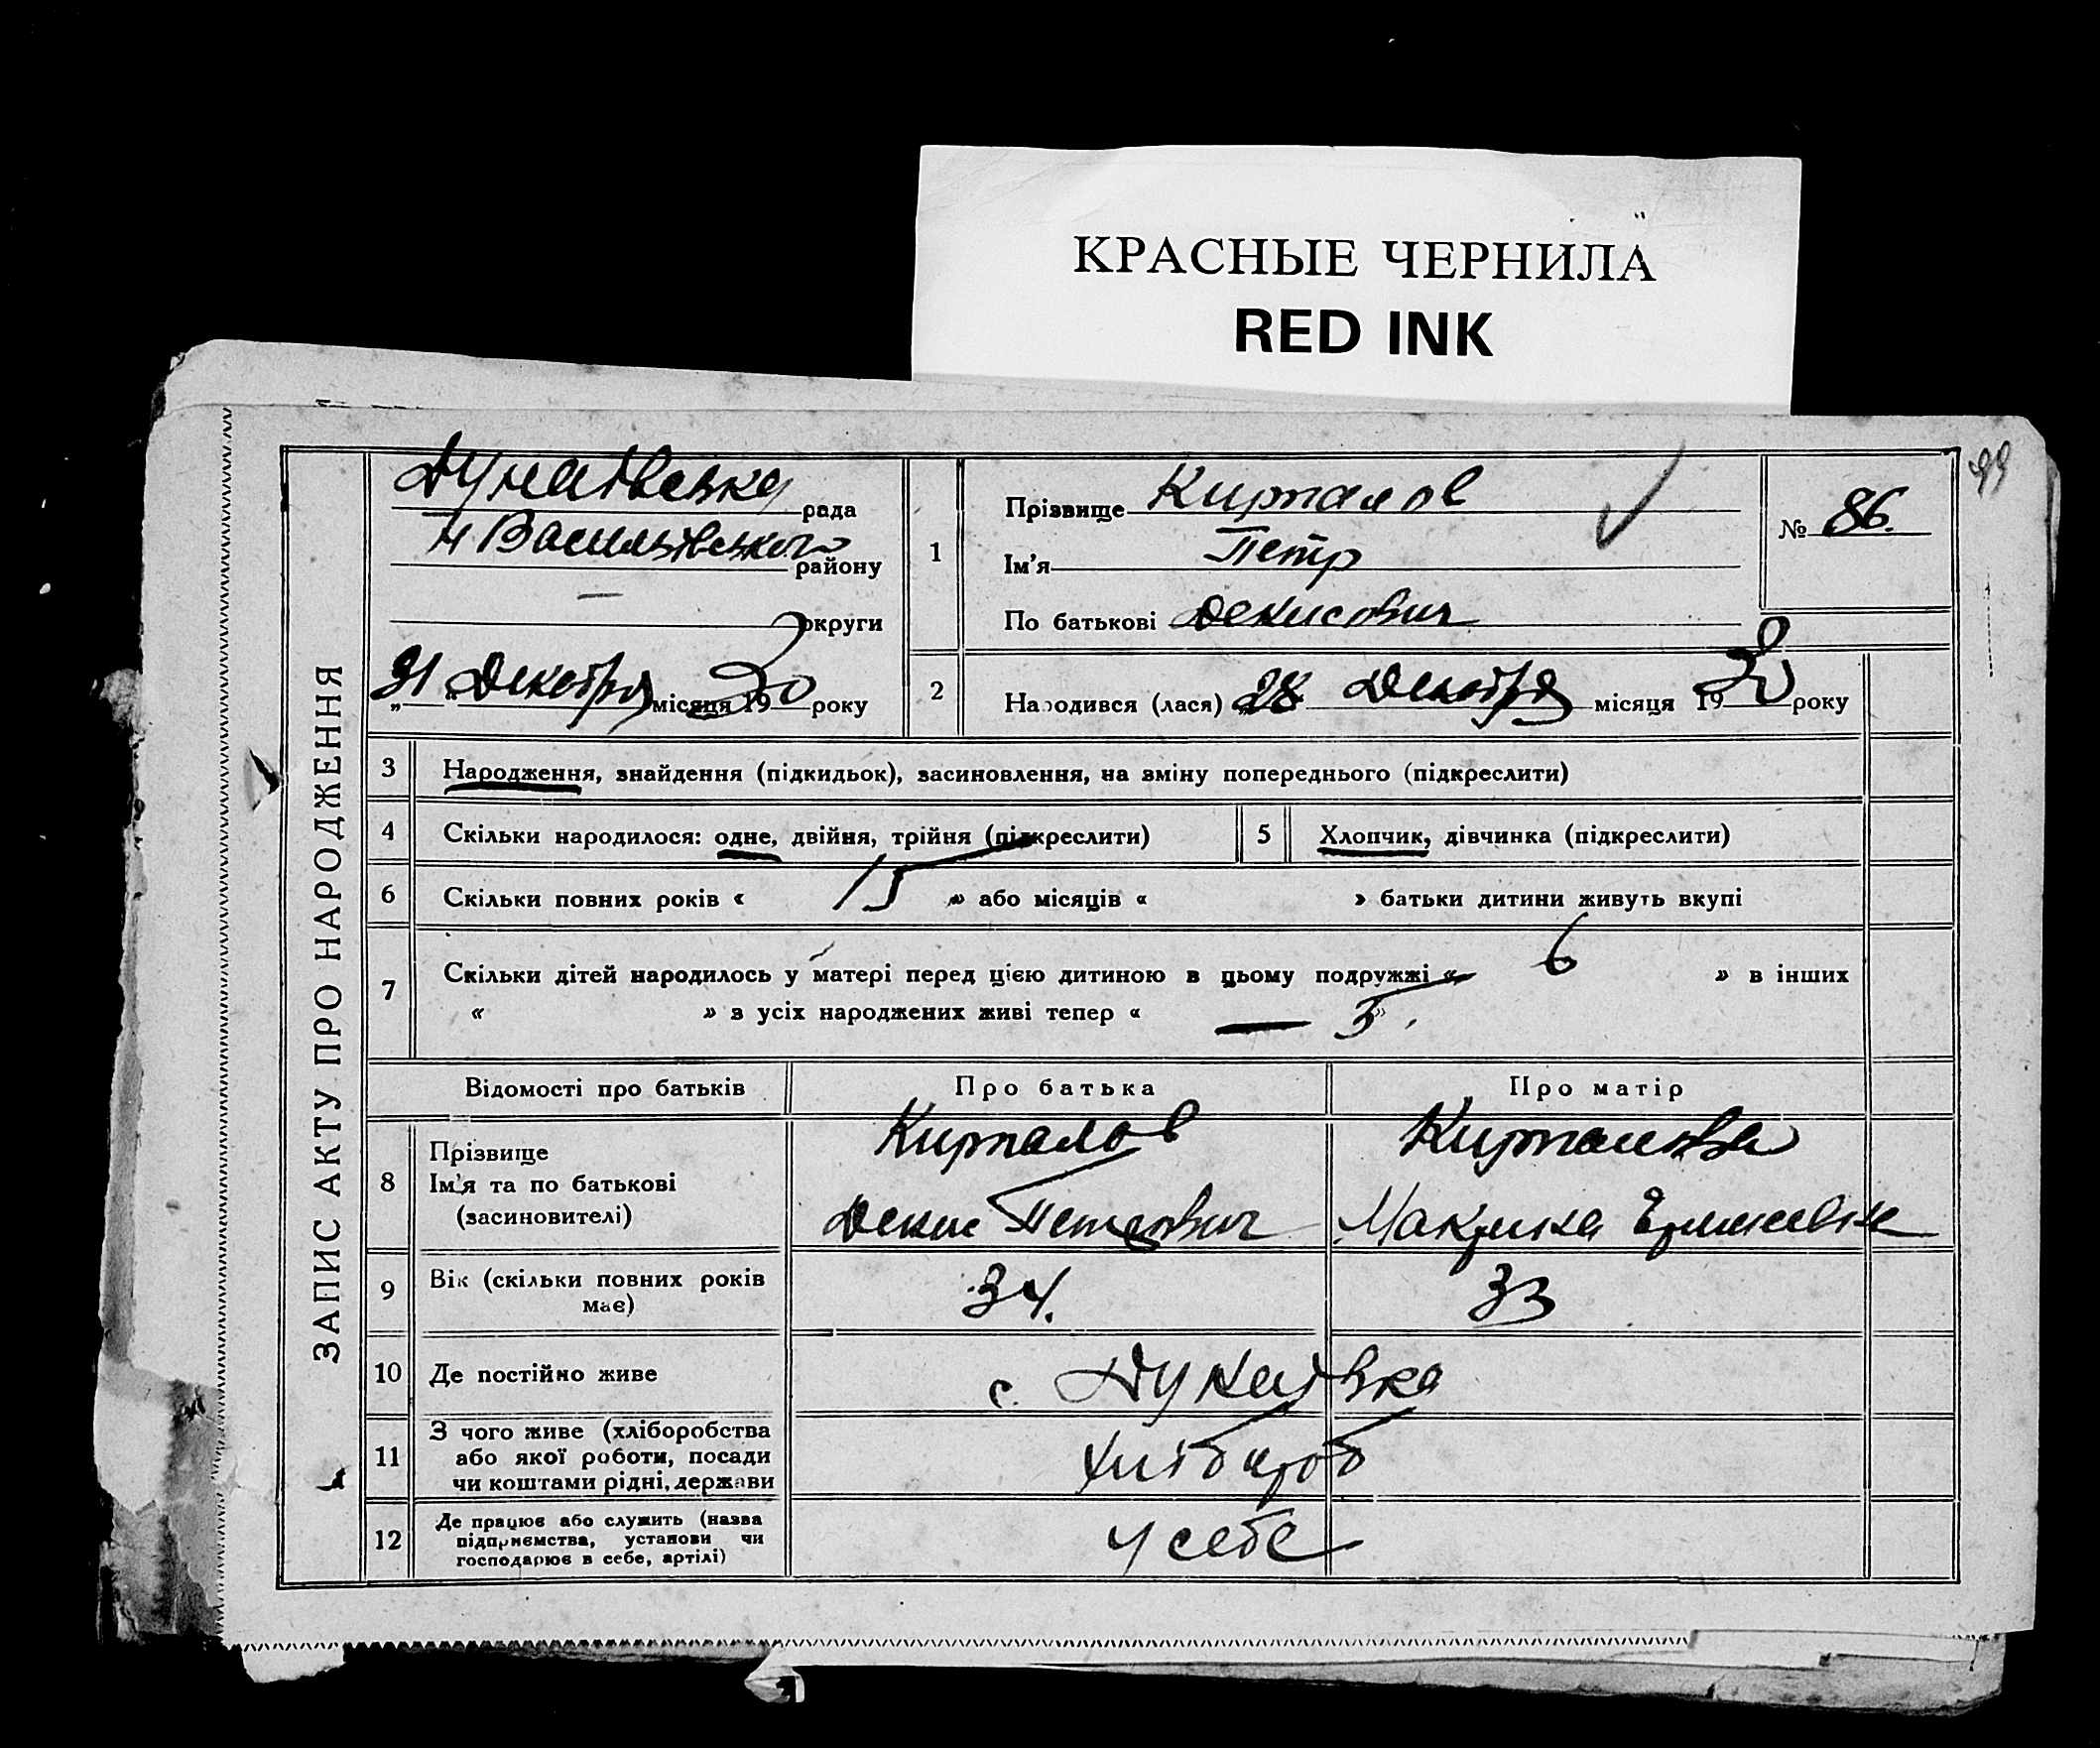 КРАСНЫЕ ЧЕРНИЛА
RED INK
99
ЗАПИС АКТУ ПРО НАРОДЖЕННЯ
Дунаївська рада
Н Васильївського району
— округи
31 Декабря місяця 1930 року
1
Прізвище Курталов
Ім'я Петр
По батькові Денисович
№ 86.
2 Народився (лася) „28 Декабря місяця 1930 року
3 Народження, знайдення (підкидьок), засиновлення, на зміну попереднього (підкреслити)
4 Скільки народилося: одне, двійня, трійня (підкреслити) 5 Хлопчик, дівчинка (підкреслити)
6 Скільки повних років « 15 » або місяців « » батьки дитини живуть вкупі
7 Скільки дітей народилось у матері перед цією дитиною в цьому подружжі « 6 » в інших
« » з усіх народжених живі тепер « — 5 »
Відомості про батьків Про батька Про матір
8 Прізвище
Ім'я та по батькові
(засиновителі)
Курталов
Денис Петрович
Курталова
Макрина
9 Вік (скільки повних років
має)
34.
33
10 Де постійно живе с. Дунаївка
11 З чого живе (хліборобства
або якої роботи, посади
чи коштами рідні, держави
хлібороб
12 Де працює або служить (назва
підприємства, установи чи
господарює в себе, артілі)
у себе